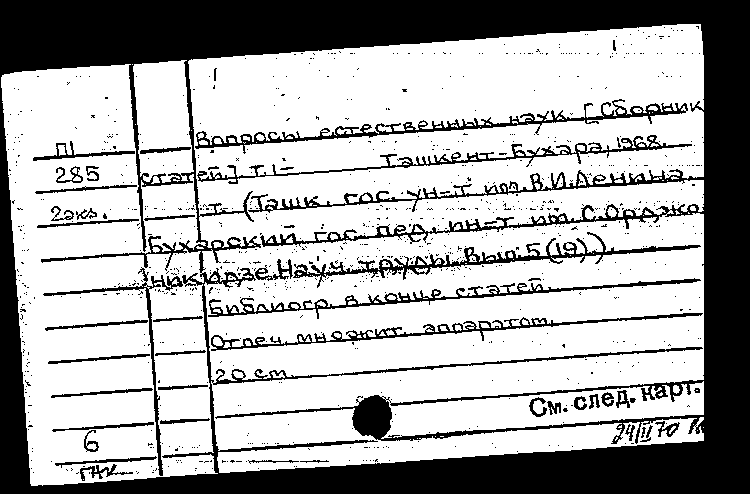 Вопросы естественных наук. [Сборник
П1
285 статей]. Т. 1- Ташкент-Бухара, 1968.
2экз. т. (Ташк. гос. ун-т им. В.И.Ленина.
Бухарский гос. пед. ин-т им. С.Орджо
никидзе. Науч. труды. Вып. 5(19).).
Библиогр. в конце статей.
Отпеч. множит. аппаратом.
20 см.
См. след. карт.
6
24/II 70